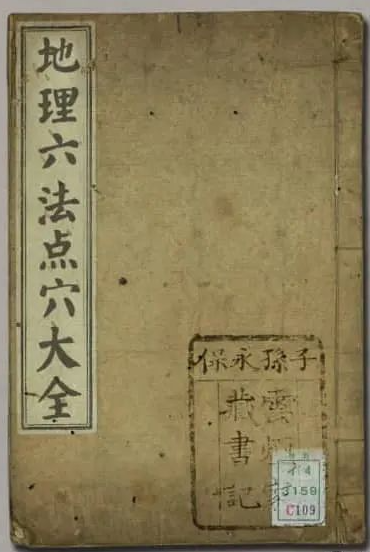 地理六法点穴大全
子孫永保
雲
藏書記
3159
C109